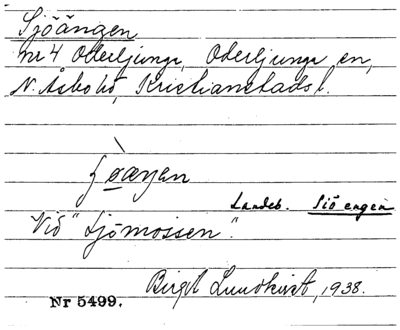 Sjöängen
nr 4 Oderljunga, Oderljunga sn,
N. Åsbo hd, Kristianstads l.
Landeb. Sjö engen
Vid "Sjömossen".
Birgit Lundkvist, 1938.
Nr 5499.